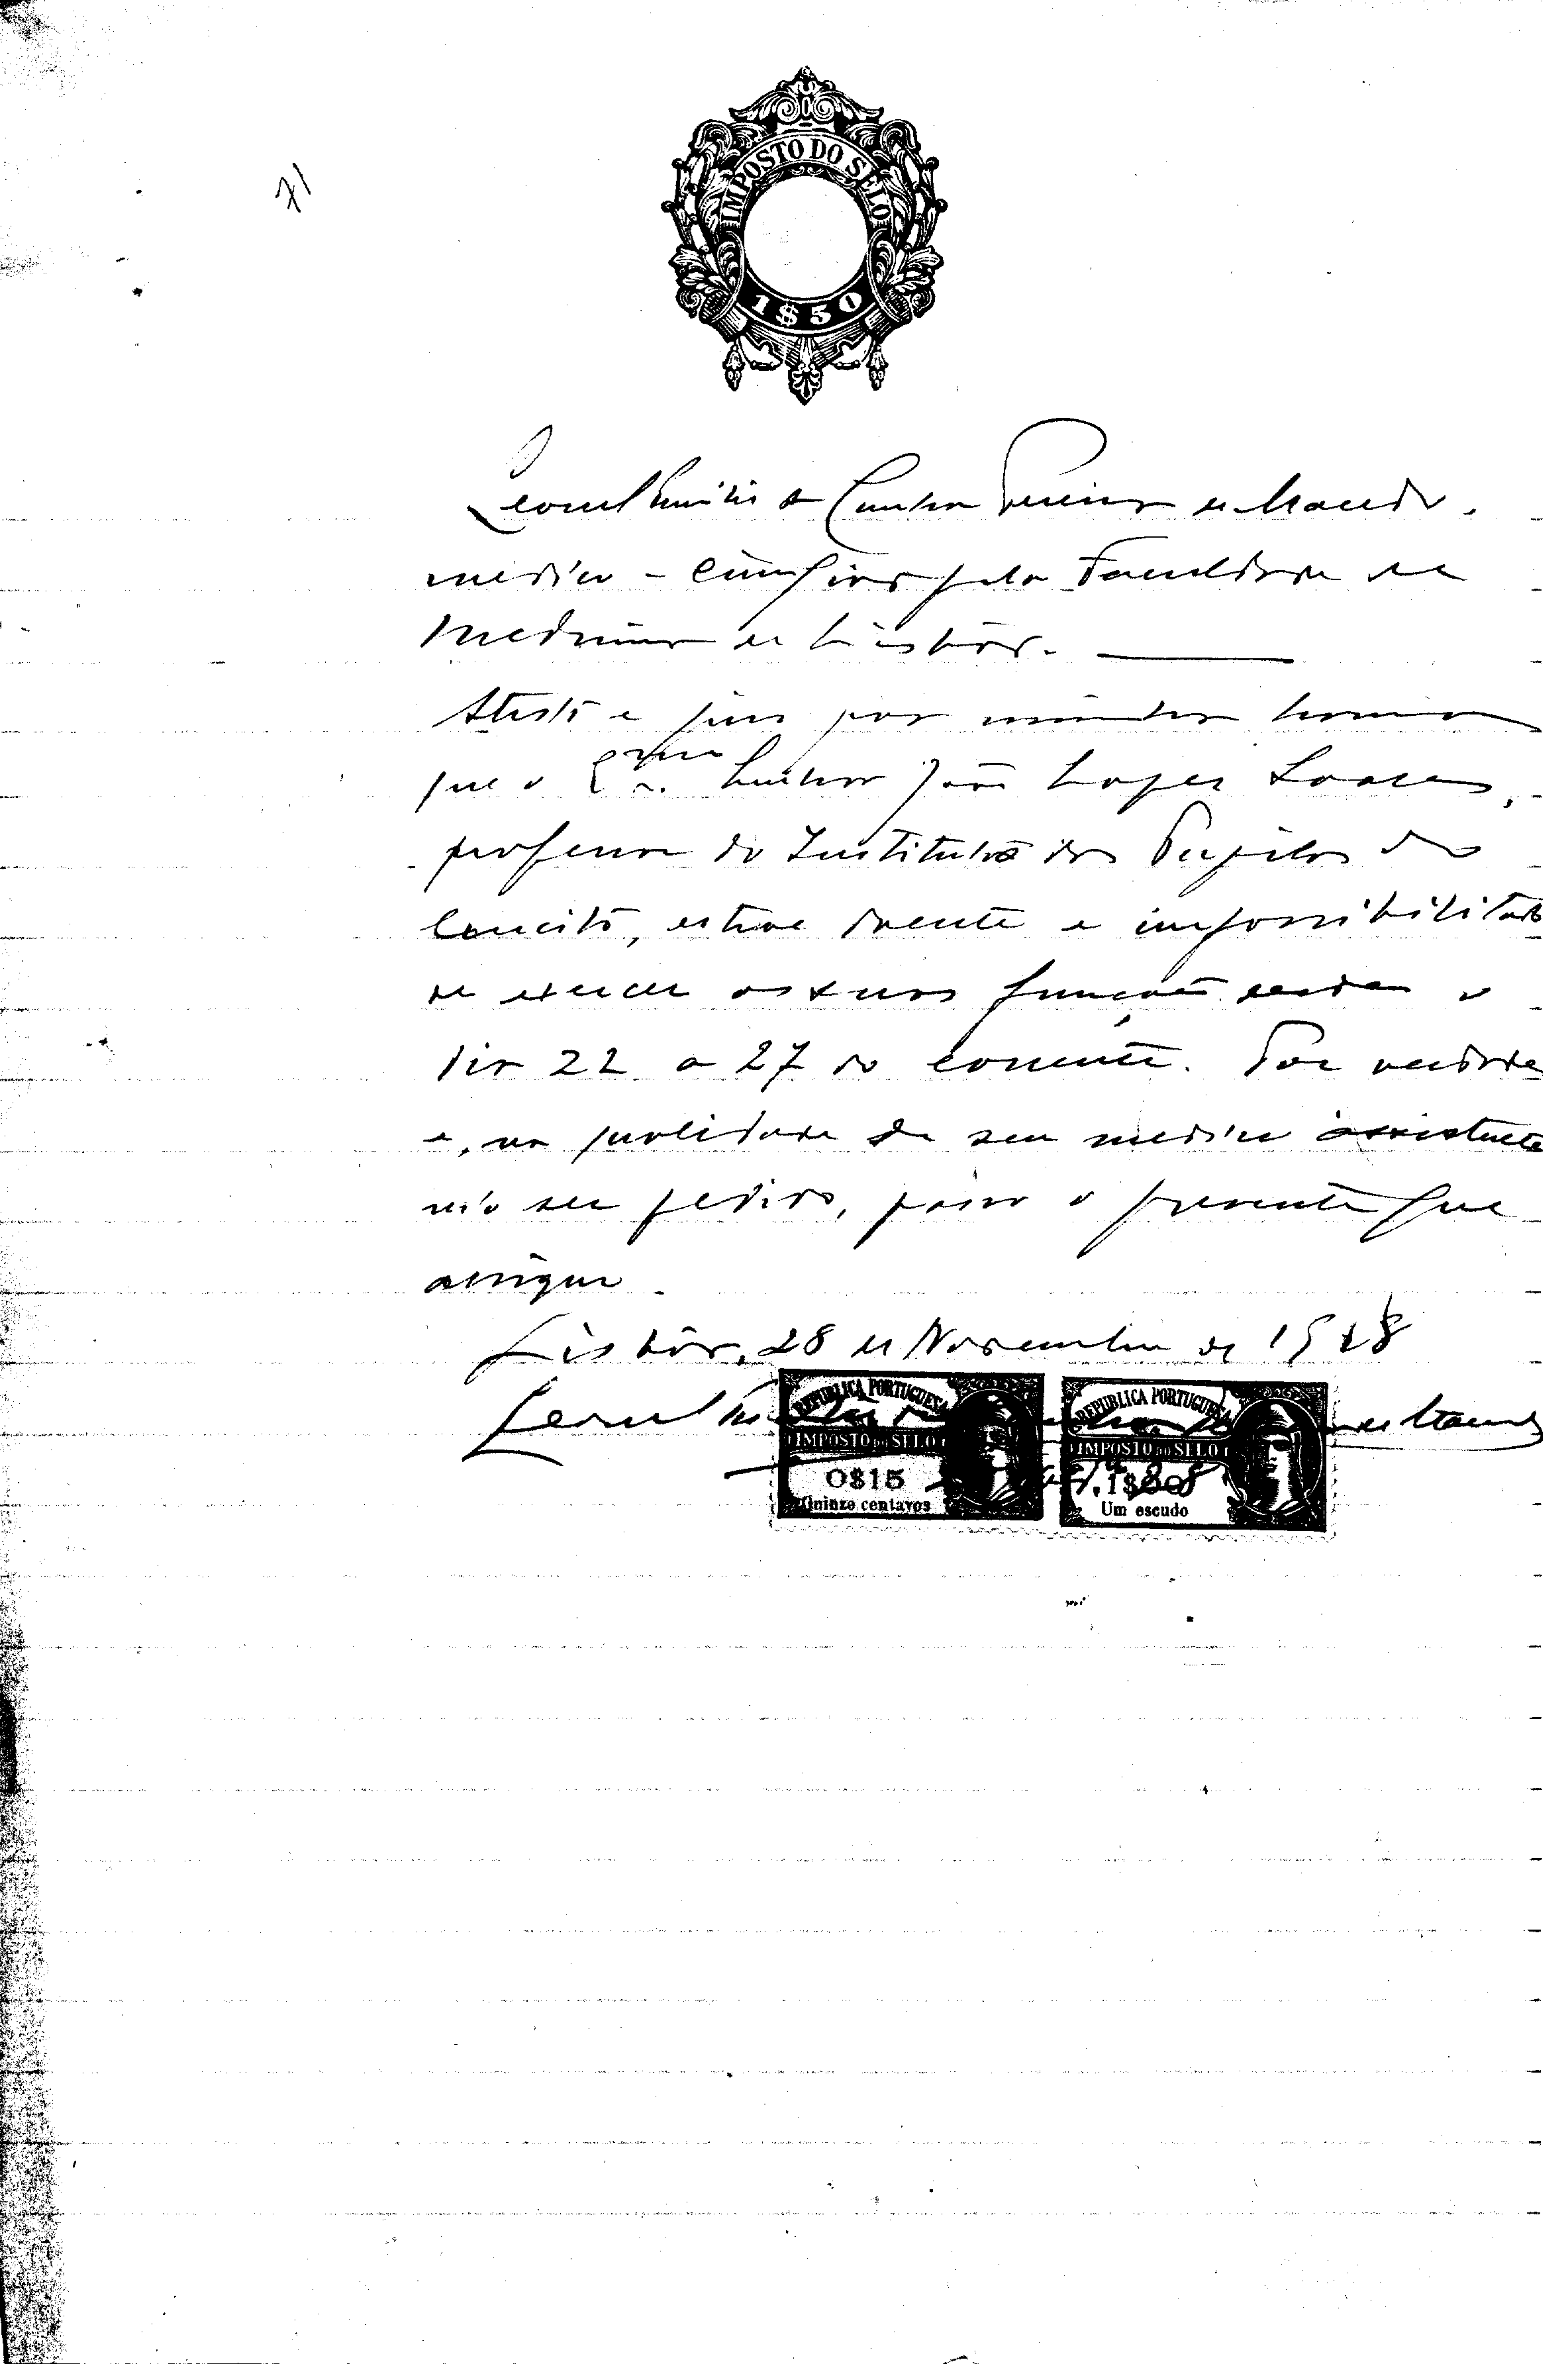 71
IMPOSTO DO SELO
1$50
da Cunha Pereira de Macedo,
medico-cirurgião pela Faculdade de
Medicina de Lisbôa.
Atesto e juro por minha honra
que o Exmo. Senhor João Lopes Soares,
professor do Instituto dos Pupilos do
Exercito, esteve doente e impossibilitado
de exercer as suas funções desde o
dia 22 a 27 do corrente. Por verdade
e, na qualidade de seu medico assistente
e a seu pedido, passo o presente que
assigno.
Lisbôa, 28 de Novembro de 1928
REPUBLICA PORTUGUESA REPUBLICA PORTUGUESA
IMPOSTO DO SELO IMPOSTO DO SELO
0$15 1$00
Quinze centavos Um escudo